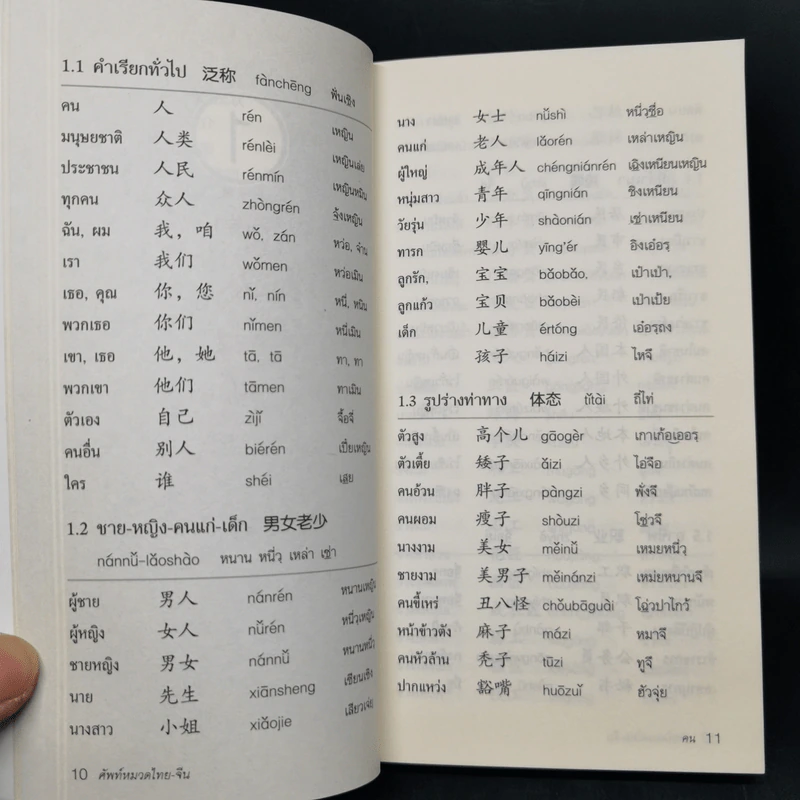 1.1 คำเรียกทั่วไป 泛称 fànchēng ฟั่นเชิง
คน 人 rén เหญิน
มนุษยชาติ 人类 rénlèi เหญินเล่ย
ประชาชน 人民 rénmín เหญินหมิน
ทุกคน 众人 zhòngrén จ้งเหญิน
ฉัน, ผม 我, 咱 wǒ, zán หว่อ, จ๋าน
เรา 我们 wǒmen หว่อเมิน
เธอ, คุณ 你, 您 nǐ, nín หนี่, หนิน
พวกเธอ 你们 nǐmen หนี่เมิน
เขา, เธอ 他, 她 tā, tā ทา, ทา
พวกเขา 他们 tāmen ทาเมิน
ตัวเอง 自己 zìjǐ จื้อจี่
คนอื่น 别人 biérén เปี๋ยเหญิน
ใคร 谁 shéi เสย
1.2 ชาย-หญิง-คนแก่-เด็ก 男女老少
nánnǚ-lǎoshào หนาน หนี่ว เหล่า เซ่า
ผู้ชาย 男人 nánrén หนานเหญิน
ผู้หญิง 女人 nǚrén หนี่วเหญิน
ชายหญิง 男女 nánnǚ หนานหนี่ว
นาย 先生 xiānsheng เซียนเซิง
นางสาว 小姐 xiǎojie เสี่ยวเจ่ย
10 ศัพท์หมวดไทย-จีน
นาง 女士 nǚshì หนี่วซื่อ
คนแก่ 老人 lǎorén เหล่าเหญิน
ผู้ใหญ่ 成年人 chéngniánrén เฉิงเหนียนเหญิน
หนุ่มสาว 青年 qīngnián ชิงเหนียน
วัยรุ่น 少年 shàonián เซ่าเหนียน
ทารก 婴儿 yīng'ér อิงเอ๋อร
ลูกรัก, 宝宝 bǎobǎo, เป่าเป่า,
ลูกแก้ว 宝贝 bǎobèi เป่าเป้ย
เด็ก 儿童 értóng เอ๋อรถง
孩子 háizi ไหจึ
1.3 รูปร่างท่าทาง 体态 tǐtài ถี่ไท่
ตัวสูง 高个儿 gāogèr เกาเก้อเออร
ตัวเตี้ย 矮子 ǎizi ไอ่จึอ
คนอ้วน 胖子 pàngzi พั่งจึ
คนผอม 瘦子 shòuzi โซ่วจึ
นางงาม 美女 měinǚ เหมยหนี่ว
ชายงาม 美男子 měinánzi เหม่ยหนานจึ
คนขี้เหร่ 丑八怪 chǒubāguài โฉ่วปาไกว้
หน้าข้าวตัง 麻子 mázi หมาจึ
คนหัวล้าน 秃子 tūzi ทูจึ
ปากแหว่ง 豁嘴 huōzuǐ ฮัวจุ่ย
คน 11